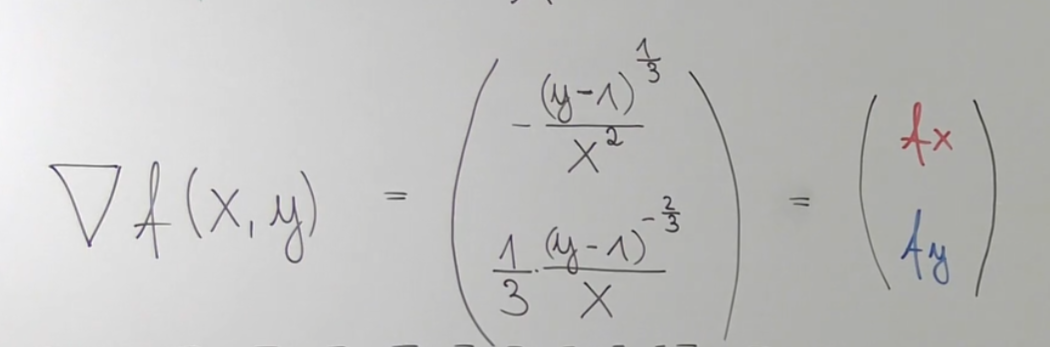 ∇f(x,y) = ( -(y-1)^(1/3)/x^2 ; 1/3 · (y-1)^(-2/3)/x ) = ( fx ; fy )